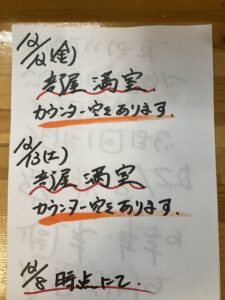 12/12(金)
部屋 満室
カウンター空きあります.
12/13(土)
部屋 満室
カウンター空きあります.
12/8 時点にて.